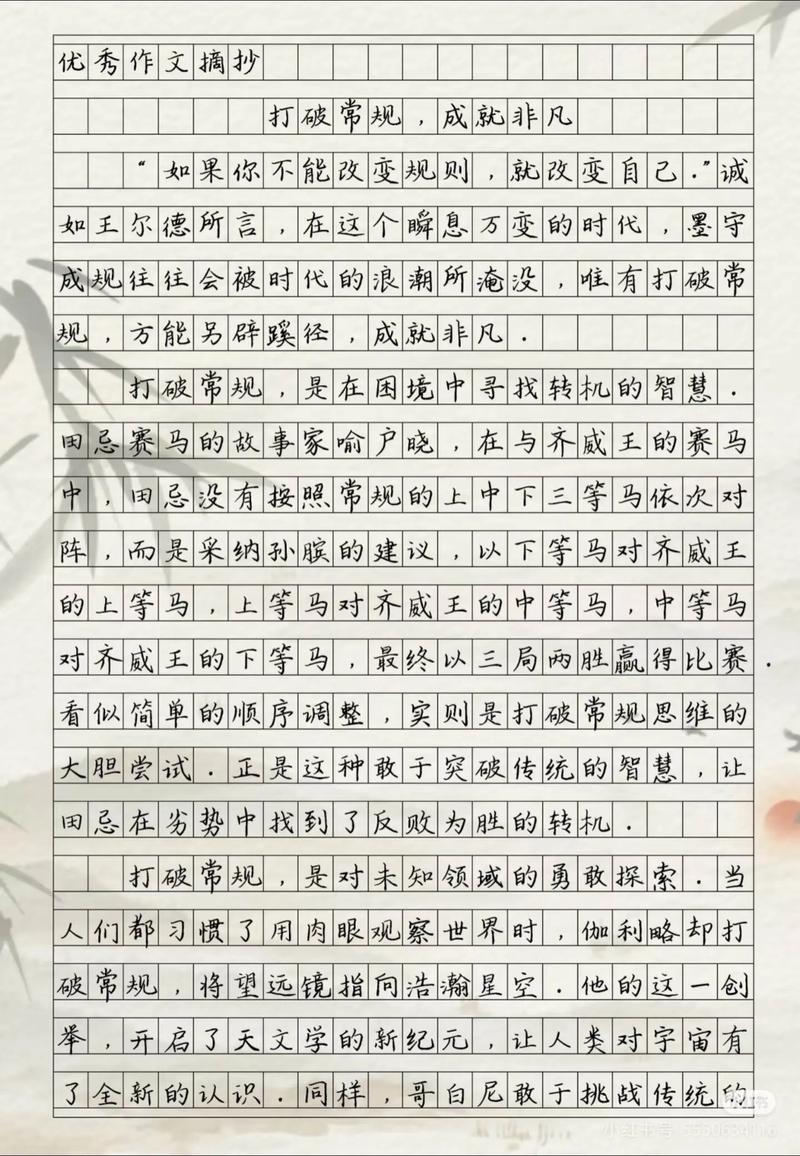 优秀作文摘抄
打破常规，成就非凡
“如果你不能改变规则，就改变自己.”诚
如王尔德所言，在这个瞬息万变的时代，墨守
成规往往会被时代的浪潮所淹没，唯有打破常
规，方能另辟蹊径，成就非凡.
打破常规，是在困境中寻找转机的智慧.
田忌赛马的故事家喻户晓，在与齐威王的赛马
中，田忌没有按照常规的上中下三等马依次对
阵，而是采纳孙膑的建议，以下等马对齐威王
的上等马，上等马对齐威王的中等马，中等马
对齐威王的下等马，最终以三局两胜赢得比赛.
看似简单的顺序调整，实则是打破常规思维的
大胆尝试.正是这种敢于突破传统的智慧，让
田忌在劣势中找到了反败为胜的转机.
打破常规，是对未知领域的勇敢探索.当
人们都习惯了用肉眼观察世界时，伽利略却打
破常规，将望远镜指向浩瀚星空.他的这一创
举，开启了天文学的新纪元，让人类对宇宙有
了全新的认识.同样，哥白尼敢于挑战传统的
小红书号